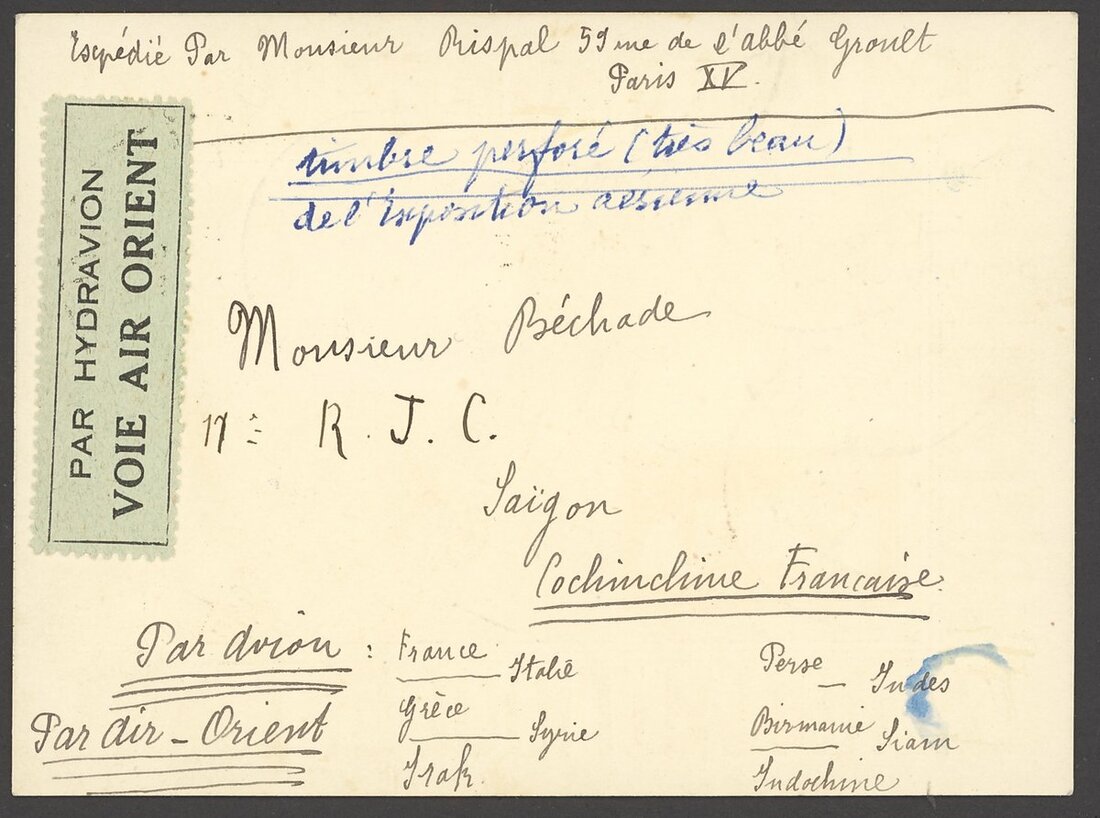 Expédié Par Monsieur Rispal 59 rue de l'abbé Groult
Paris XV.
PAR HYDRAVION
VOIE AIR ORIENT
timbre perforé (très beau)
de l'Exposition aérienne
Monsieur Béchade
R. J. C.
Saïgon
Cochinchine Francaise.
Par avion :
Par Air - Orient
France
Italie
Grèce
Syrie
Irak.
Perse
Indes
Birmanie
Siam
Indochine